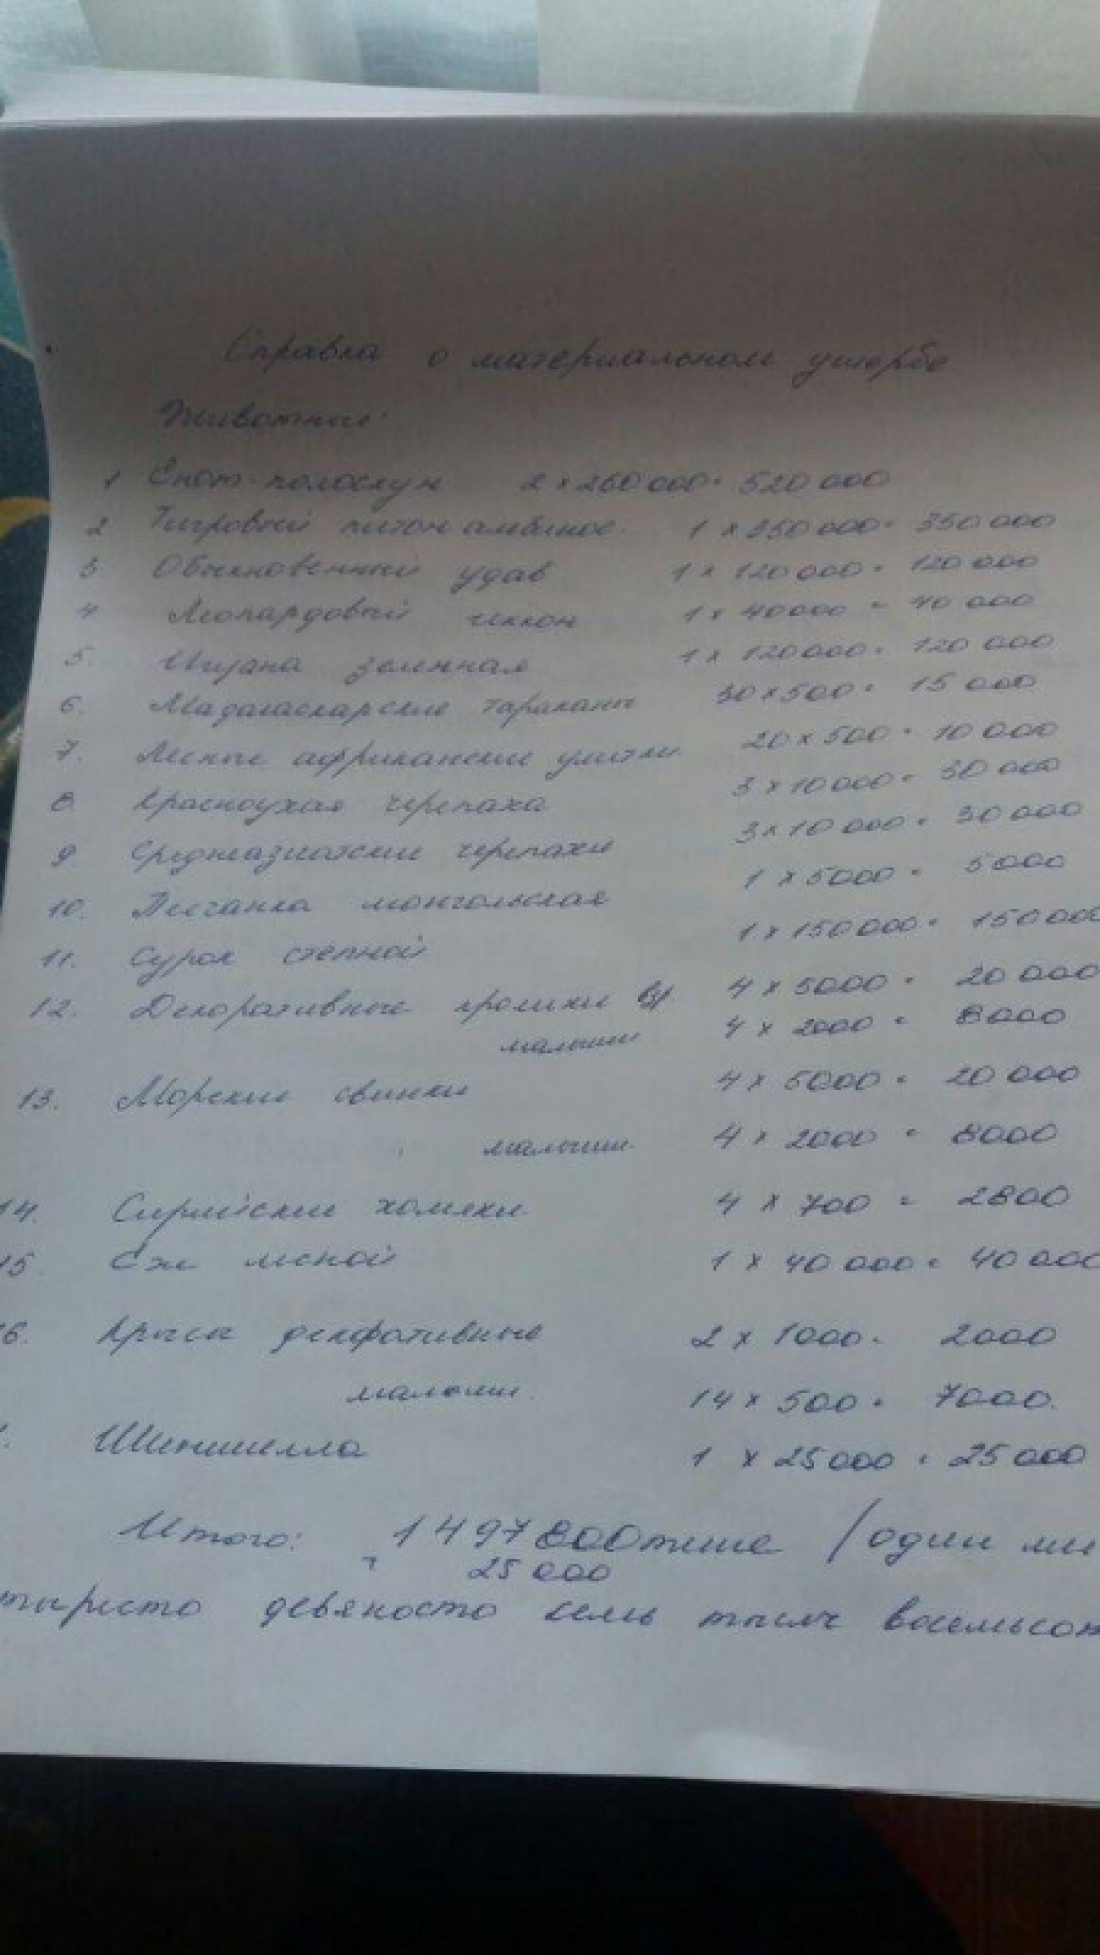 Справка о материальном ущербе
Животные:
1 Енот-полоскун 2 x 260 000 = 520 000
2 Тигровый питон альбинос. 1 x 350 000 = 350 000
3 Обыкновенный удав 1 x 120 000 = 120 000
4 Леопардовый геккон 1 x 40000 = 40 000
5. Игуана зеленная 1 x 120000 = 120 000
6. Мадагаскарские тараканы 30 x 500 = 15 000
7. Лесные африканские улитки 20 x 500 = 10 000
8. Красноухая черепаха 3 x 10000 = 30 000
9. Среднеазиатские черепахи 3 x 10 000 = 30 000
10. Песчанка монгольская 1 x 5000 = 5000
11. Сурок степной 1 x 150 000 = 150 000
12. Декоративные кролики 4 x 5000 = 20 000
малыши 4 x 2000 = 8000
13. Морские свинки 4 x 5000 = 20 000
малыши. 4 x 2000 = 8000
14. Сирийские хомяки 4 x 700 = 2800
15. Еж лесной 1 x 40 000 = 40 000
16. Крысы декоративные 2 x 1000 = 2000
малыши. 14 x 500 = 7000.
Шиншилла 1 x 25 000 = 25 000
Итого: 1 497 800 тенге /один ми
25 000
тыристо девяносто семь тысяч восемьсот